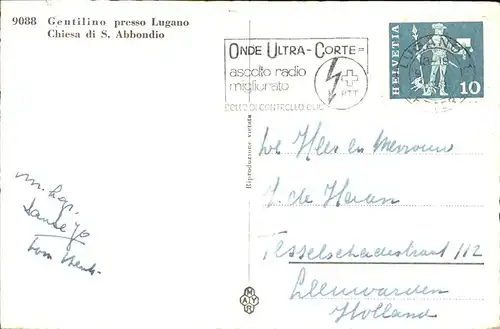 9088 Gentilino presso Lugano
Chiesa di S. Abbondio
ONDE ULTRA-CORTE=
ascolto radio
migliorato
BOLLO DI CONTROLLO
PTT
HELVETIA
10
LUGANO 1
Riproduzione vietata
MAYR
De Heer en Mevrouw
J. de Haan
Tesselschadestraat 112
Leeuwarden
Holland
m. hgr.